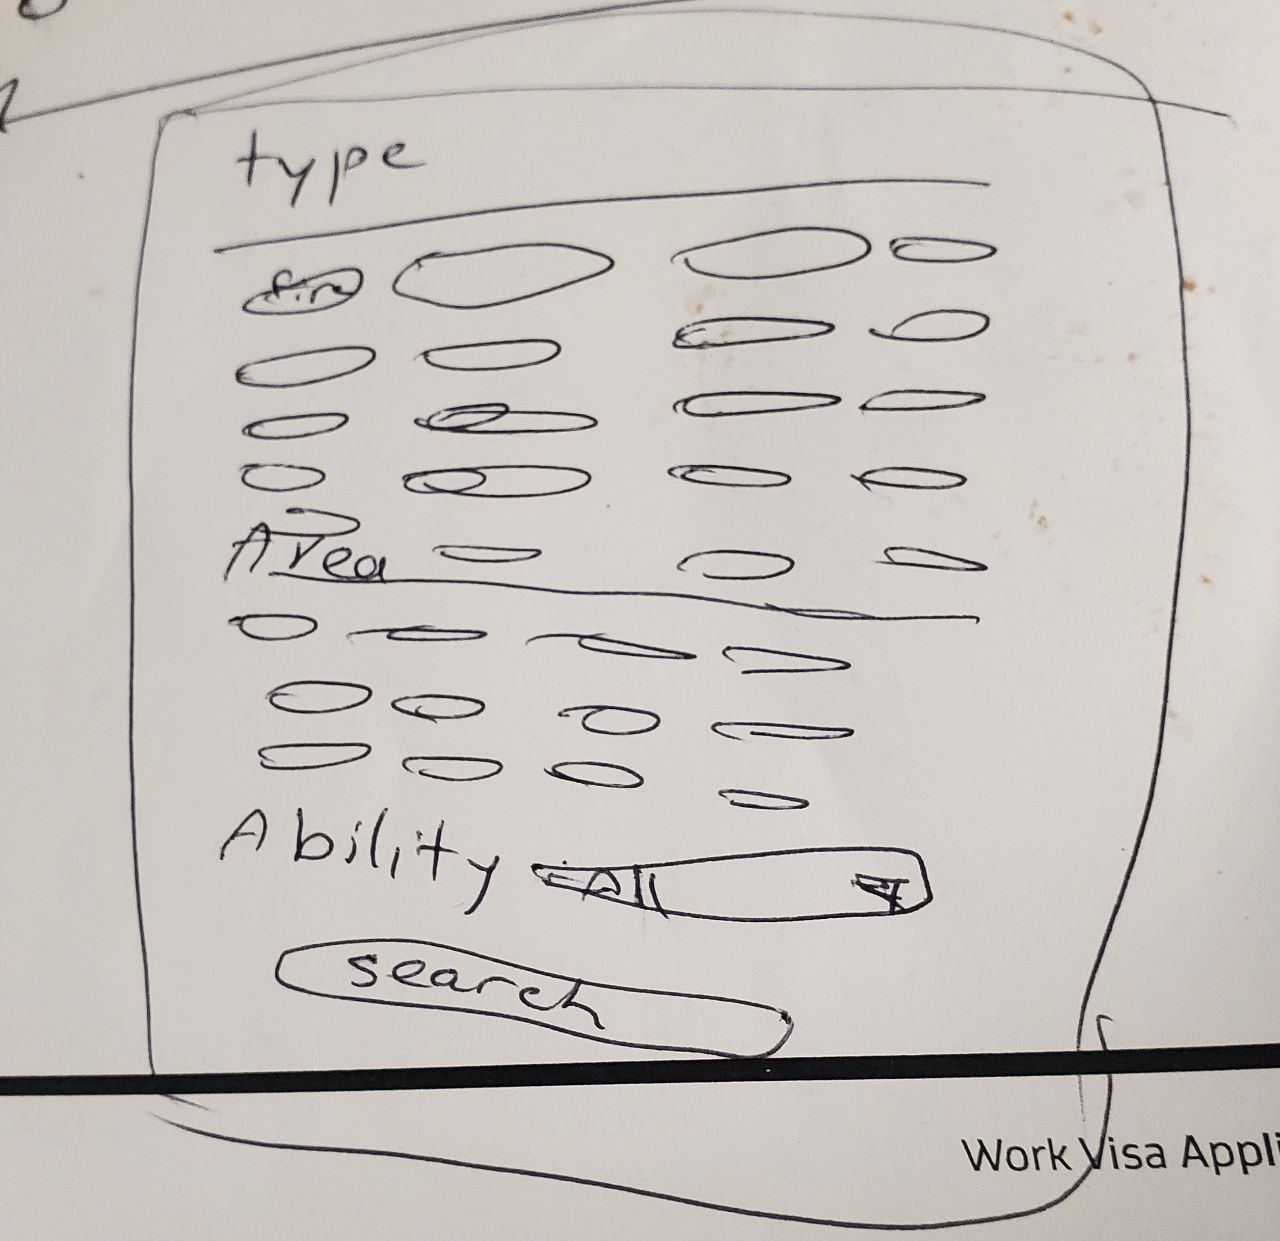 type
fire
Area
Ability All
search
Work Visa Appli